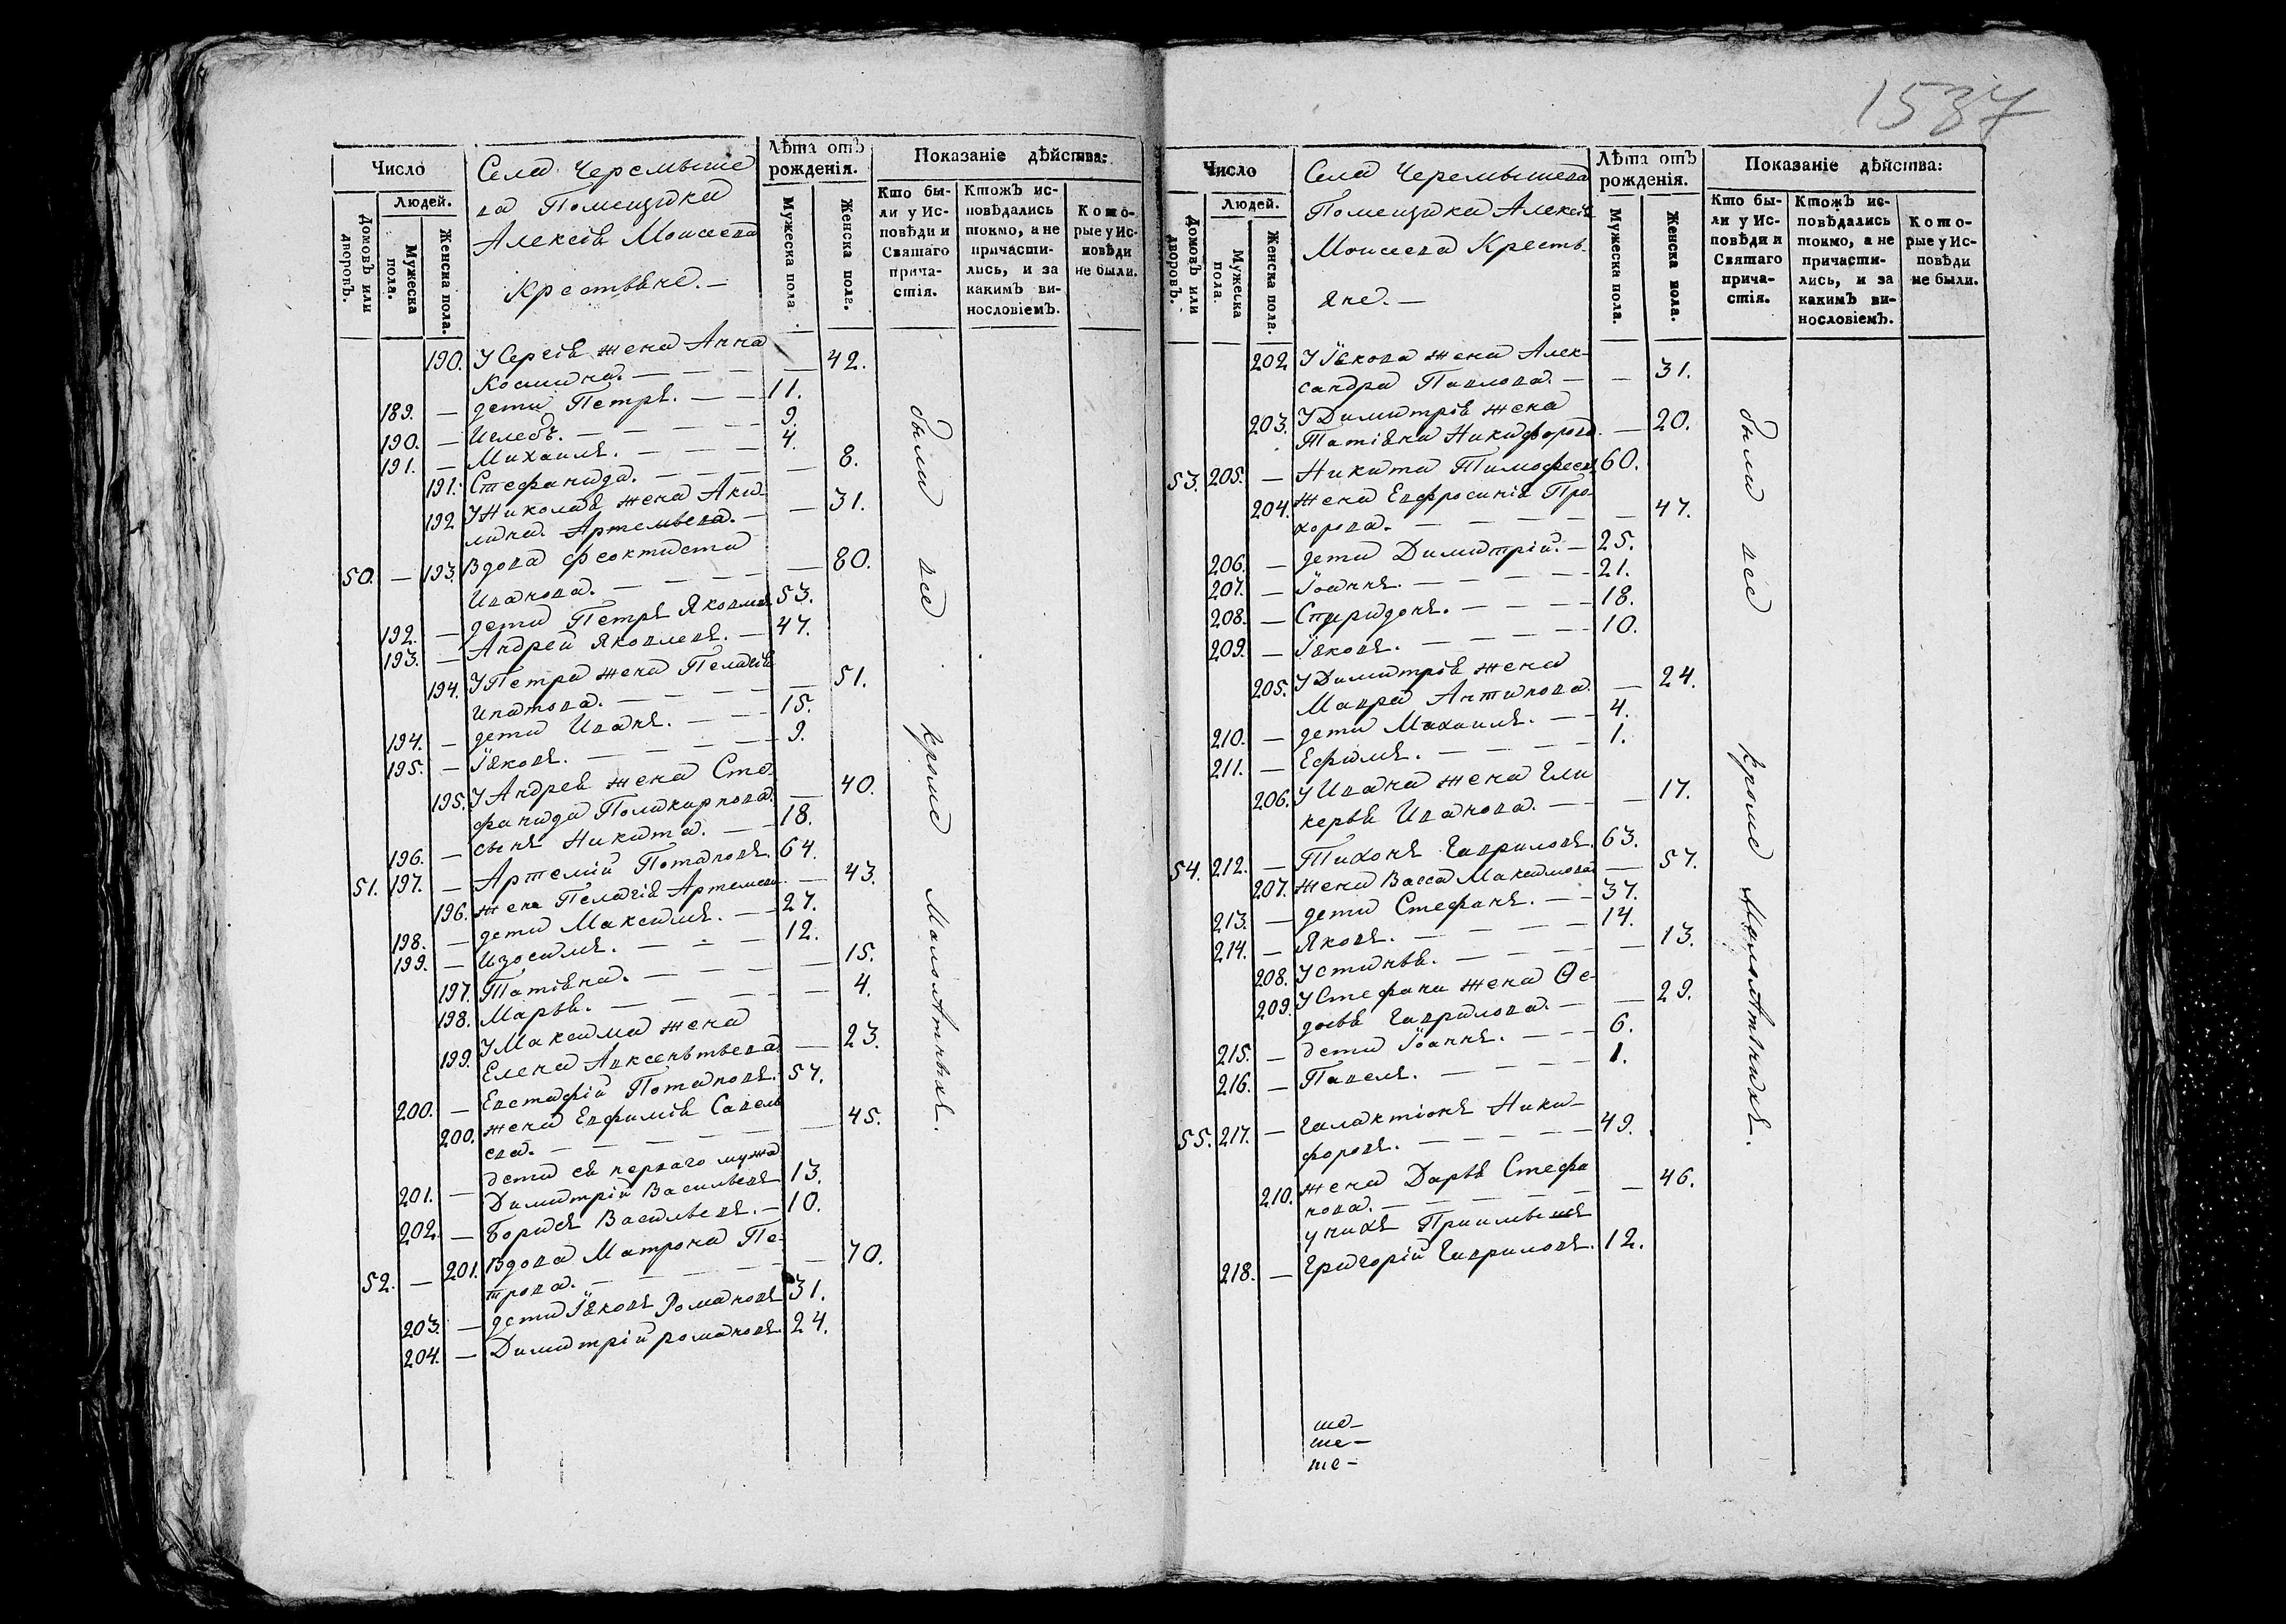 1537
Число
Людей.
Домовъ или дворовъ.
Мужеска пола.
Женска пола.
Села Черемыше
ва Помещика
Алексія Моисеева
Крестьяне. —
Лѣта отъ рожденія.
Мужеска пола.
Женска пола.
Показаніе дѣйства:
Кто бы-
ли у Ис-
повѣди и
Святаго
прича-
стія.
Ктожъ ис-
повѣдались
токмо, а не
причасти-
лись, и за
какимъ ви-
нословіемъ.
Кото-
рые у Ис-
повѣди
не были.
190. У Сергія жена Анна
Космина. — — — — 42.
189. — дети Петръ. — — 11.
190. — Иглебъ. — — — — 9.
191. — Михаилъ. — — — 4.
191. Стефанида. — — — — 8.
192 У Николая жена Аки-
лина Артемьева. — — 31.
50. — 193. Вдова Феоктиста
Иванова. — — — — — 80.
192. — дети Петръ Яковлев. 53.
193. — Андрей Яковлевъ. — 47.
194. У Петра жена Пелагія
Ипатова. — — — — 51.
194. — дети Иванъ. — — 15.
195. — Іяковъ. — — — — 9.
195. У Андрея жена Сте-
фанида Поликарпова. — 40.
196. — сынъ Никита. — — 18.
51. 197. — Артемій Потаповъ. 64.
196. жена Пелагія Артемева — 43.
198. — дети Максимъ. — — 27.
199. — Изосимъ. — — — 12.
197. Татіяна. — — — — 15.
198. Марья. — — — — — 4.
199. У Максима жена
Елена Авксентьева — 23.
200. — Евстафій Потаповъ. 57.
200. жена Евфимія Савель
ева. — — — — — — 45.
дети съ перваго мужа
201. — Димитрій Васильевъ 13.
202. — Борисъ Васильевъ. — 10.
52. — 201. Вдова Матрона Пе-
трова. — — — — — 70.
203. — дети Іяковъ Романовъ 31.
204. — Димитрій романовъ. 24.
были все кроме Малолѣтныхъ.
Число
Людей.
Домовъ или дворовъ.
Мужеска пола.
Женска пола.
Села Черемышева
Помещика Алексія
Моисеева Кресть-
яне. —
Лѣта отъ рожденія.
Мужеска пола.
Женска пола.
Показаніе дѣйства:
Кто бы-
ли у Ис-
повѣди и
Святаго
прича-
стія.
Ктожъ ис-
повѣдались
токмо, а не
причасти-
лись, и за
какимъ ви-
нословіемъ.
Кото-
рые у Ис-
повѣди
не были.
202 У Іякова жена Алек-
сандра Павлова. — — 31.
203. У Димитрія жена
Татіяна Никифорова. — 20.
53. 205. — Никита Тимофеев. 60.
204. жена Евфросинія Про-
хорова. — — — — — 47.
206. — дети Димитрій. — 25.
207. — Іоаннъ. — — — — — 21.
208. — Спиридонъ. — — — 18.
209. — Іяковъ. — — — — 10.
205. У Димитрія жена
Мавра Антипова. — 24.
210. — дети Михаилъ. — — 4.
211. — Ефимъ. — — — — 1.
206. У Ивана жена Гли
керья Иванова. — — — 17.
54. 212. — Тихонъ Гавриловъ. 63.
207. жена Васса Максимова — 57.
213. — дети Стефанъ. — — 37.
214. — Яковъ. — — — — — 14.
208. Устинья. — — — — — 13.
209. У Стефана жена Ѳе-
досья Гаврилова. — — 29.
215. — дети Іоаннъ. — — — 6.
216. — Павелъ. — — — — 1.
55. 217. — Галактіонъ Ники-
форовъ. — — — — — 49.
210. жена Дарья Стефа
нова. — — — — — — 46.
у нихъ Приимышъ
218. — Григорій Гавриловъ. 12.
были все кроме Малолѣтныхъ.
ше—
ше—
ше—